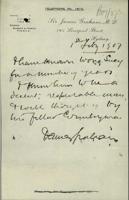 TELEPHONE No.
Sir James Graham M.D.
Liverpool Street
Sydney
July 1907
I have known Wong Suey
for a number of years
& know him to be a
decent, respectable man
& well thought of by
his fellow Countrymen
James Graham